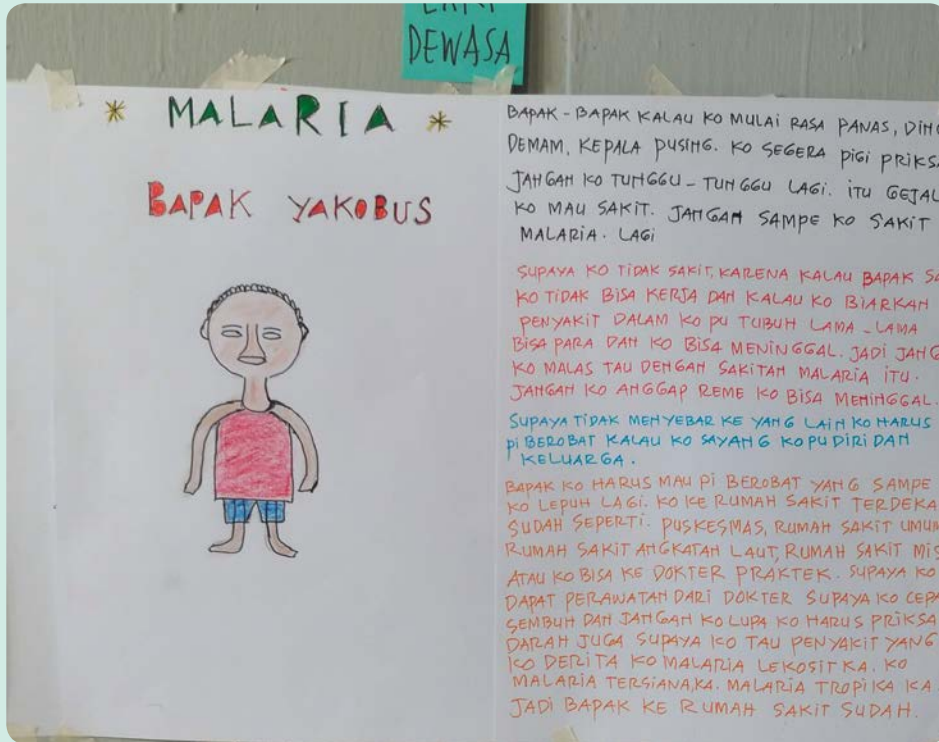 DEWASA
* MALARIA *
BAPAK YAKOBUS
BAPAK - BAPAK KALAU KO MULAI RASA PANAS,
DEMAM, KEPALA PUSING. KO SEGERA PIGI PRIKSA
JANGAN KO TUNGGU - TUNGGU LAGI. ITU
KO MAU SAKIT. JANGAN SAMPE KO SAKIT
MALARIA. LAGI
SUPAYA KO TIDAK SAKIT, KARENA KALAU BAPAK
KO TIDAK BISA KERJA DAN KALAU KO BIARKAN
PENYAKIT DALAM KO PU TUBUH LAMA - LAMA
BISA PARA DAN KO BISA MENINGGAL. JADI
KO MALAS TAU DENGAN SAKITAN MALARIA ITU.
JANGAN KO ANGGAP REME KO BISA MENINGGAL.
SUPAYA TIDAK MENYEBAR KE YANG LAIN KO HARUS
PI BEROBAT KALAU KO SAYANG KO PU DIRI DAN
KELUARGA.
BAPAK KO HARUS MAU PI BEROBAT YANG SAMPE
KO LEPUH LAGI. KO KE RUMAH SAKIT
SUDAH SEPERTI: PUSKESMAS, RUMAH SAKIT UMUM
RUMAH SAKIT ANGKATAN LAUT, RUMAH SAKIT
ATAU KO BISA KE DOKTER PRAKTEK. SUPAYA KO
DAPAT PERAWATAN DARI DOKTER SUPAYA KO
SEMBUH DAN JANGAN KO LUPA KO HARUS PRIKSA
DARAH JUGA SUPAYA KO TAU PENYAKIT YANG
KO DERITA KO MALARIA LEKOSIT KA. KO
MALARIA TERSIANA,KA. MALARIA TROPIKA KA
JADI BAPAK KE RUMAH SAKIT SUDAH.